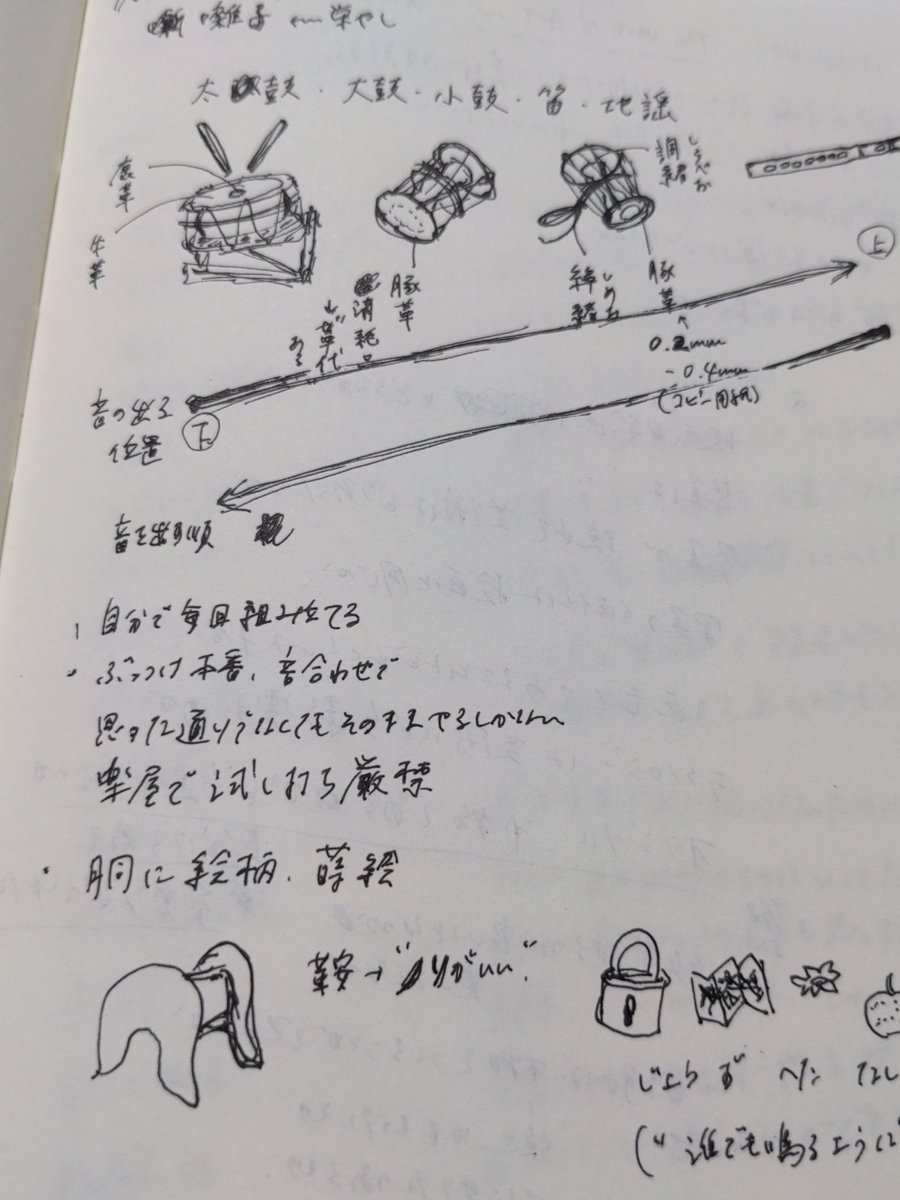 囃子 ← 栄やし
太鼓・大鼓・小鼓・笛・地謡
鹿革
牛革
豚革
消耗品
革代
ある
調緒
しらべお
締緒
しめお
豚革
0.2mm
-0.4mm
(コピー用紙)
上
音の出る
位置
下
音を出す順
自分で毎回組み立てる
・ぶっつけ本番、音合わせで
思った通りでなくてもそのままやるしかない
楽屋で試し打ち厳禁
・胴に絵柄、蒔絵
鞍→"のりがいい"
じょうず へた なし
("誰でも鳴るように"